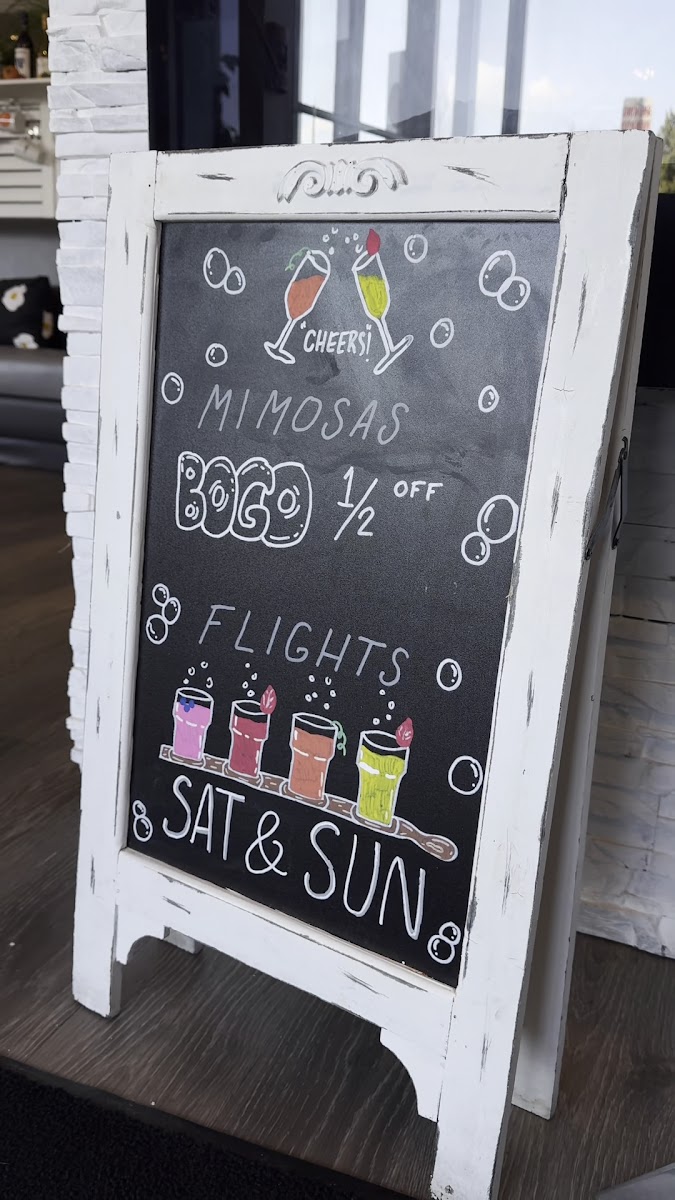 "CHEERS!
MIMOSAS
BOGO 1/2 OFF
FLIGHTS
SAT & SUN